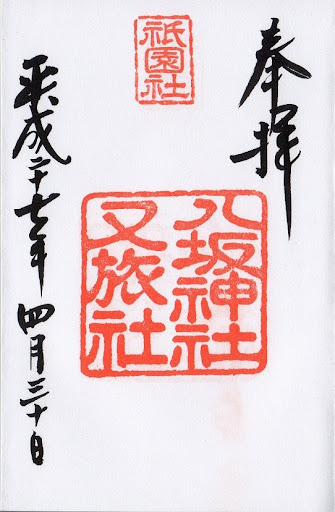 奉拝
祇園社
八坂神社
又旅社
平成二十七年四月三十日